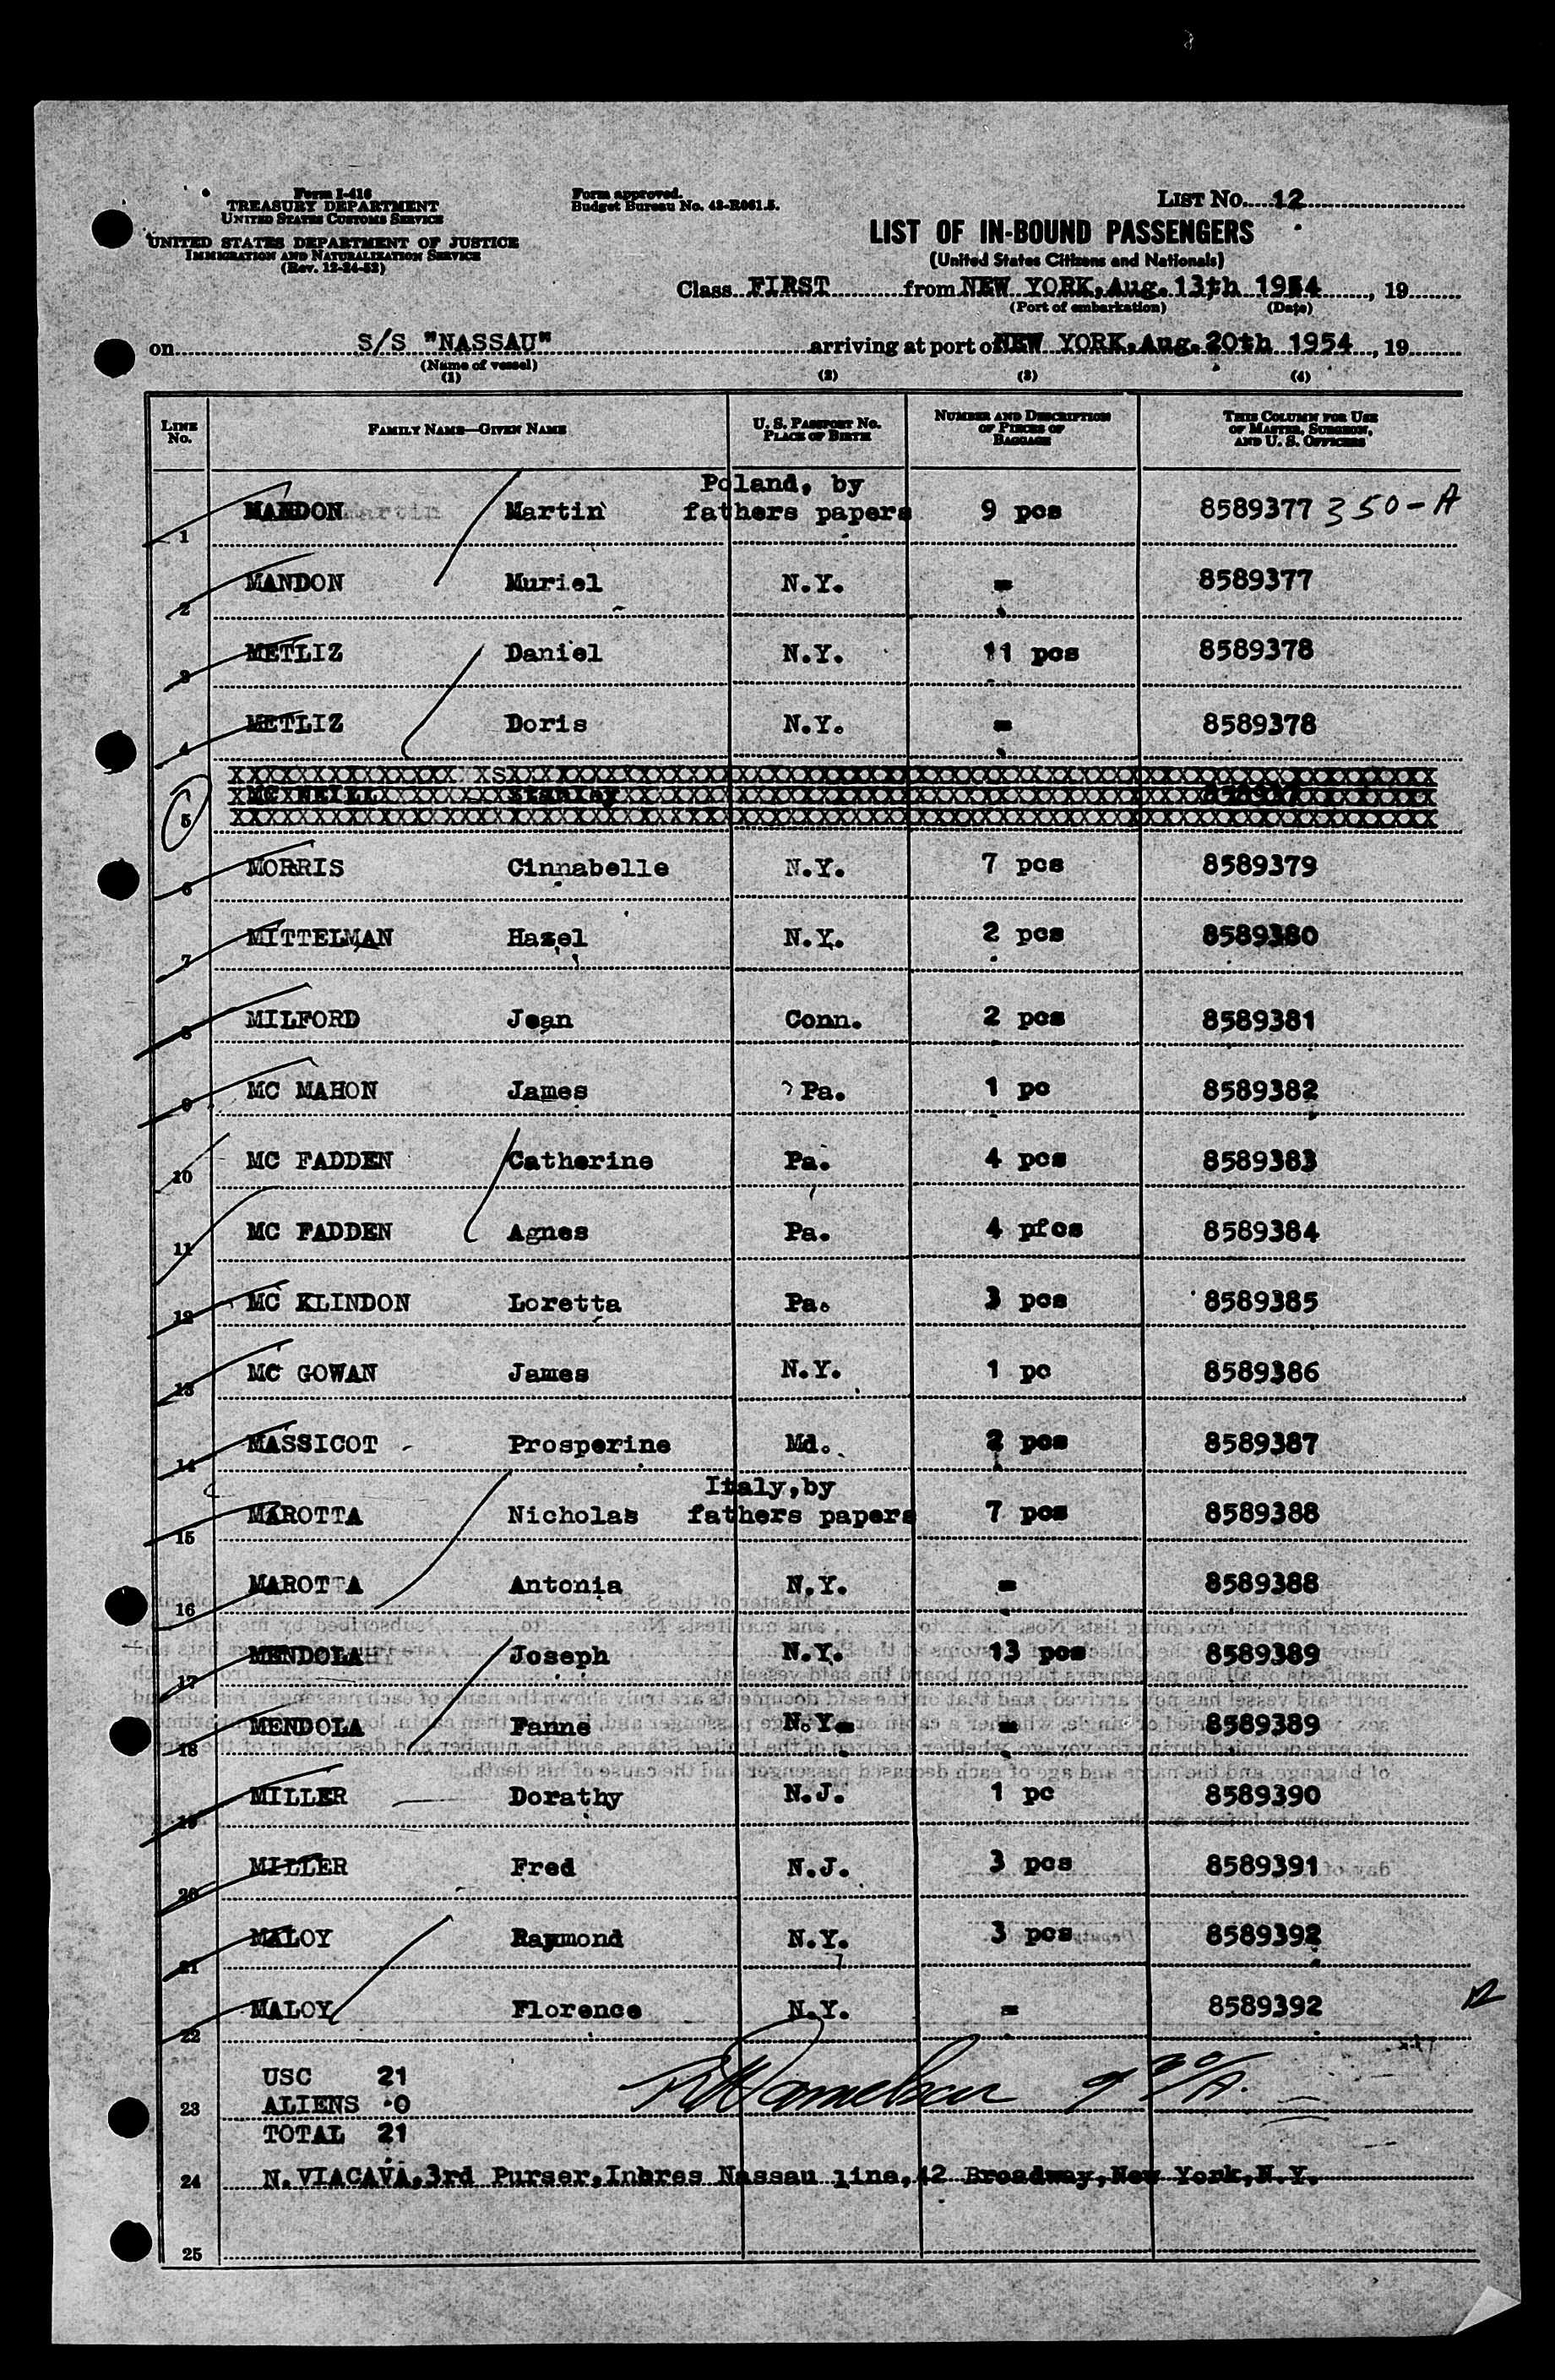 Form I-416
TREASURY DEPARTMENT
UNITED STATES CUSTOMS SERVICE
UNITED STATES DEPARTMENT OF JUSTICE
IMMIGRATION AND NATURALIZATION SERVICE
(Rev. 12-24-52)
Form approved.
Budget Bureau No. 43-R061.5.
LIST No. 12
LIST OF IN-BOUND PASSENGERS
(United States Citizens and Nationals)
Class FIRST from NEW YORK, Aug. 13th 1954, 19
(Port of embarkation) (Date)
on S/S "NASSAU" arriving at port of NEW YORK, Aug. 20th 1954, 19
(Name of vessel)
(1) (2) (3) (4)
LINE No. FAMILY NAME—GIVEN NAME U. S. PASSPORT No. PLACE OF BIRTH NUMBER AND DESCRIPTION OF PIECES OF BAGGAGE THIS COLUMN FOR USE OF MASTER, SURGEON, AND U. S. OFFICERS
Poland, by
1 MANDON Martin fathers papers 9 pcs 8589377 350-A
2 MANDON Muriel N.Y. = 8589377
3 METLIZ Daniel N.Y. 11 pcs 8589378
4 METLIZ Doris N.Y. = 8589378
5 MC NEILL Stanley
6 MORRIS Cinnabelle N.Y. 7 pcs 8589379
7 MITTELMAN Hazel N.Y. 2 pcs 8589380
8 MILFORD Jean Conn. 2 pcs 8589381
9 MC MAHON James Pa. 1 pc 8589382
10 MC FADDEN Catherine Pa. 4 pcs 8589383
11 MC FADDEN Agnes Pa. 4 pfcs 8589384
12 MC KLINDON Loretta Pa. 3 pcs 8589385
13 MC GOWAN James N.Y. 1 pc 8589386
14 MASSICOT Prosperine Md. 2 pcs 8589387
Italy, by
15 MAROTTA Nicholas fathers papers 7 pcs 8589388
16 MAROTTA Antonia N.Y. = 8589388
17 MENDOLA Joseph N.Y. 13 pcs 8589389
18 MENDOLA Fanne N.Y. = 8589389
19 MILLER Dorathy N.J. 1 pc 8589390
20 MILLER Fred N.J. 3 pcs 8589391
21 MALOY Raymond N.Y. 3 pcs 8589392
22 MALOY Florence N.Y. = 8589392 12
USC 21
23 ALIENS 0
TOTAL 21
24 N. VIACAVA, 3rd Purser, Inbres Nassau line, 42 Broadway, New York, N.Y.
25